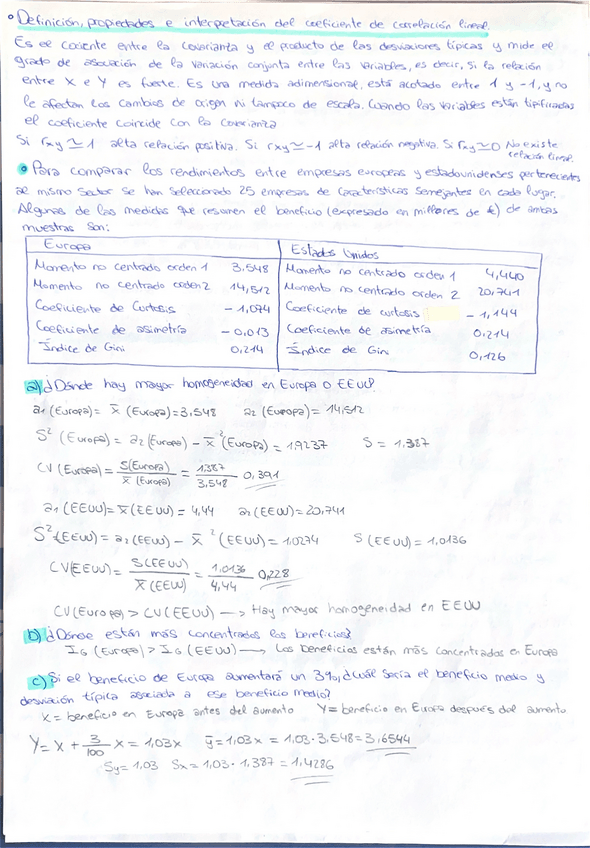 • Definición, propiedades e interpretación del coeficiente de correlación lineal.
Es el cociente entre la covarianza y el producto de las desviaciones típicas y mide el
grado de asociación de la variación conjunta entre las variables, es decir, si la relación
entre X e Y es fuerte. Es una medida adimensional, está acotado entre 1 y -1, y no
le afectan los cambios de origen ni tampoco de escala. Cuando las variables están tipificadas
el coeficiente coincide con la covarianza
Si rxy ≃ 1 alta relación positiva. Si rxy ≃ -1 alta relación negativa. Si rxy ≃ 0 No existe
relación lineal
• Para comparar los rendimientos entre empresas europeas y estadounidenses pertenecientes
al mismo sector se han seleccionado 25 empresas de características semejantes en cada lugar.
Algunas de las medidas que resumen el beneficio (expresado en millones de €) de ambas
muestras son:
Europa
Momento no centrado orden 1 3,548
Momento no centrado orden 2 14,512
Coeficiente de Curtosis -1,074
Coeficiente de asimetría -0,013
Índice de Gini 0,214
Estados Unidos
Momento no centrado orden 1 4,440
Momento no centrado orden 2 20,741
Coeficiente de curtosis -1,144
Coeficiente de asimetría 0,214
Índice de Gini 0,126
a) ¿Dónde hay mayor homogeneidad en Europa o EEUU?
a1 (Europa) = x̄ (Europa) = 3,548 a2 (Europa) = 14,512
S² (Europa) = a2 (Europa) - x̄² (Europa) = 1,9237 S = 1,387
CV (Europa) = S(Europa) / x̄ (Europa) = 1,387 / 3,548 0,391
a1 (EEUU) = x̄ (EEUU) = 4,44 a2 (EEUU) = 20,741
S² (EEUU) = a2 (EEUU) - x̄² (EEUU) = 1,0274 S (EEUU) = 1,0136
CV(EEUU) = S(EEUU) / x̄(EEUU) = 1,0136 / 4,44 0,228
CV(Europa) > CV(EEUU) → Hay mayor homogeneidad en EEUU
b) ¿Dónde están más concentrados los beneficios?
IG (Europa) > IG (EEUU) → Los beneficios están más concentrados en Europa
c) Si el beneficio de Europa aumentará un 3%, ¿cuál sería el beneficio medio y
desviación típica asociada a ese beneficio medio?
X = beneficio en Europa antes del aumento Y = beneficio en Europa después del aumento
Y = x + 3/100 x = 1,03x ȳ = 1,03x = 1,03 · 3,548 = 3,6544
Sy = 1,03 Sx = 1,03 · 1,387 = 1,4286